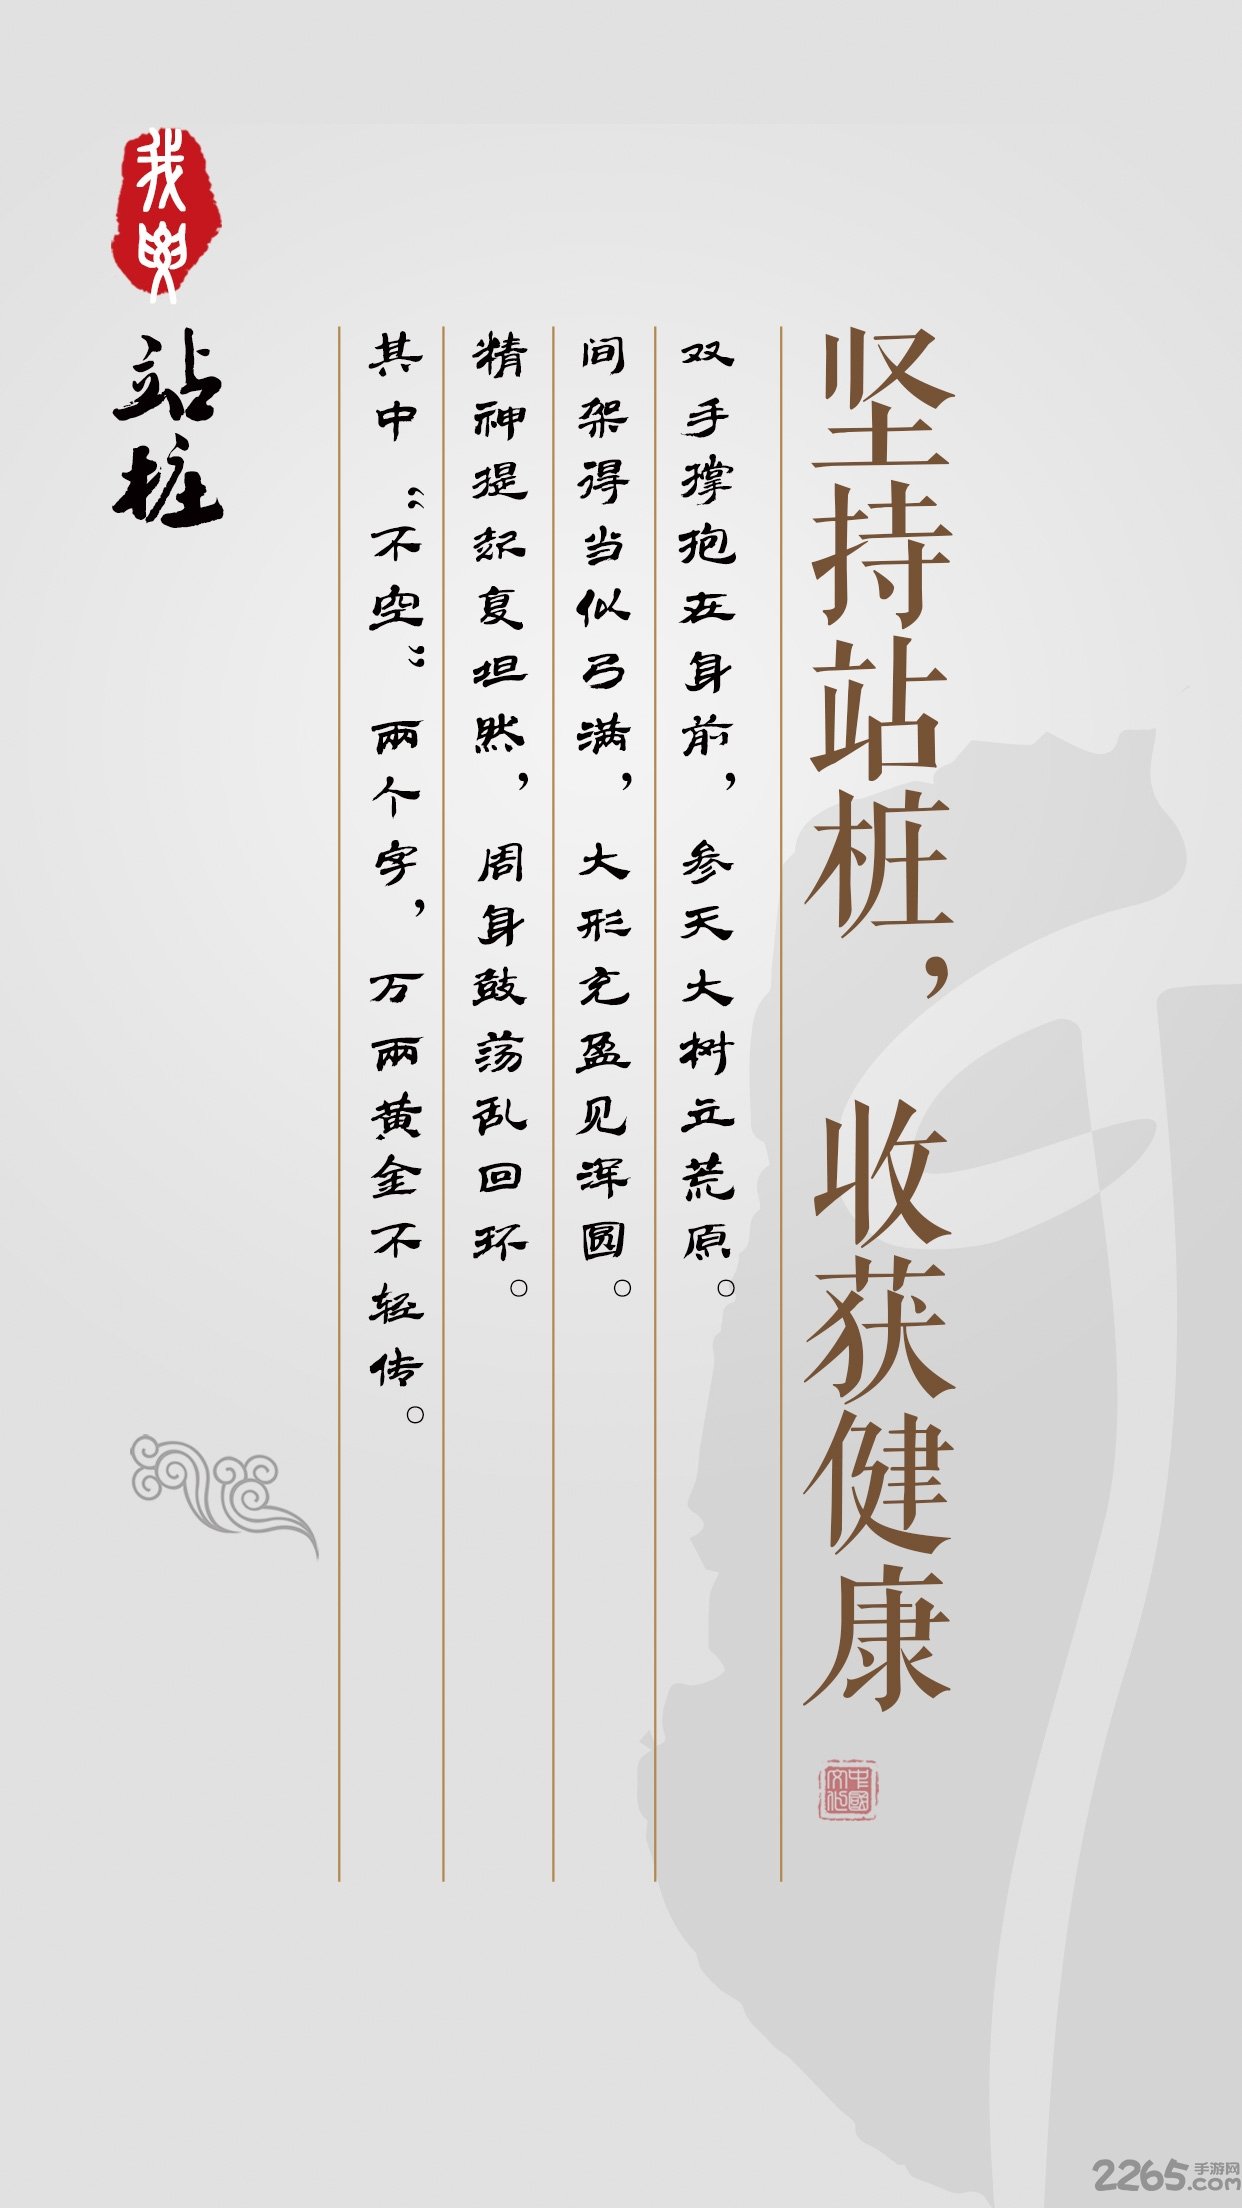 坚持站桩，收获健康
双手撑抱在身前，参天大树立荒原。
间架得当似弓满，大形充盈见浑圆。
精神提起复坦然，周身鼓荡乱回环。
其中“不空”兩个字，万兩黄金不轻传。
我要
站桩
中國文化
2265手游网
.com